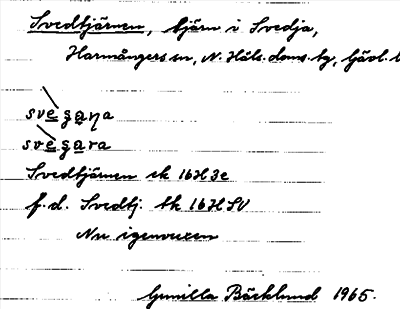 Svedtjärnen, tjärn i Svedja,
Harmångers sn, N. Häls. doms. tg, Gävl. l
svegaṇa
svegara
Svedtjärnen ek 16H3e
f.d. Svedtj. tk 16H SV
Nu igenvuxen
Gunilla Bäcklund 1965.